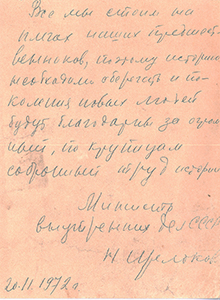 Все мы стоим на
плечах наших предшест-
венников, поэтому историю
необходимо сберегать и по-
коления новых людей
будут благодарны за огром-
ный, по крупицам
собранный труд истории
Министр
внутренних дел СССР
Н Щелоков
20.11.1972 г